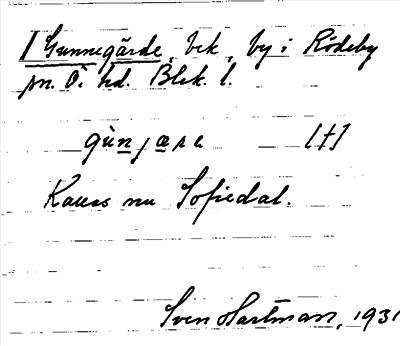 1 Gunnegärde, bck, by i Rödeby
sn. Ö. hd. Blek. l.
gùnjærə [†]
Kallas nu Sofiedal.
Sven Hartman, 1931